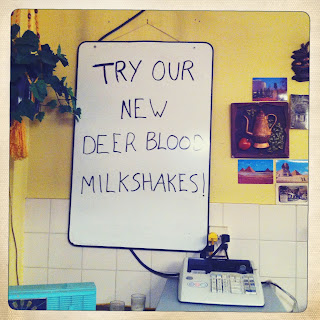 TRY OUR
NEW
DEER BLOOD
MILKSHAKES!